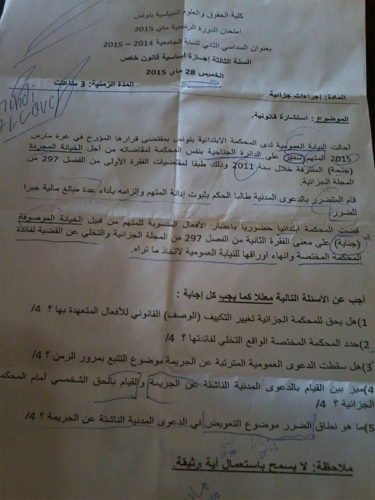 كلية الحقوق والعلوم السياسية بتونس
امتحان الدورة الرئيسية ماي 2015
بعنوان السداسي الثاني للسنة الجامعية 2014 – 2015
السنة الثالثة إجازة أساسية قانون خاص
الخميس 28 ماي 2015
المادة: إجراءات جزائية المدة الزمنية: 3 ساعات
الموضوع: استشارة قانونية.
أحالت النيابة العمومية لدى المحكمة الابتدائية بتونس بمقتضى قرارها المؤرخ في غرة مارس
2015 المتهم سمير على الدائرة الجناحية بنفس المحكمة لمقاضاته من أجل الخيانة المجردة
(جنحة) المقترفة خلال سنة 2011 وذلك طبقا لمقتضيات الفقرة الأولى من الفصل 297 من
المجلة الجزائية.
قام المتضرر بالدعوى المدنية طالبا الحكم بثبوت إدانة المتهم وإلزامه بأداء عدة مبالغ مالية جبرا
للضرر.
قضت المحكمة ابتدائيا حضوريا باعتبار الأفعال المنسوبة للمتهم من قبيل الخيانة الموصوفة
(جناية) على معنى الفقرة الثانية من الفصل 297 من المجلة الجزائية والتخلي عن القضية لفائدة
المحكمة المختصة وإنهاء أوراقها للنيابة العمومية لاتخاذ ما تراه.
أجب عن الأسئلة التالية معللا كما يجب كل إجابة :
1)هل يحق للمحكمة الجزائية تغيير التكييف (الوصف) القانوني للأفعال المتعهدة بها ؟ /4
2)حدد المحكمة المختصة الواقع التخلي لفائدتها ؟ /4
3)هل سقطت الدعوى العمومية المترتبة عن الجريمة موضوع التتبع بمرور الزمن ؟ /4
4)ميز بين القيام بالدعوى المدنية الناشئة عن الجريمة والقيام بالحق الشخصي أمام المحكمة
الجزائية ؟ /4
5)ما هو نطاق الضرر موضوع التعويض في الدعوى المدنية الناشئة عن الجريمة ؟ /4
ملاحظة: لا يسمح باستعمال أية وثيقة.